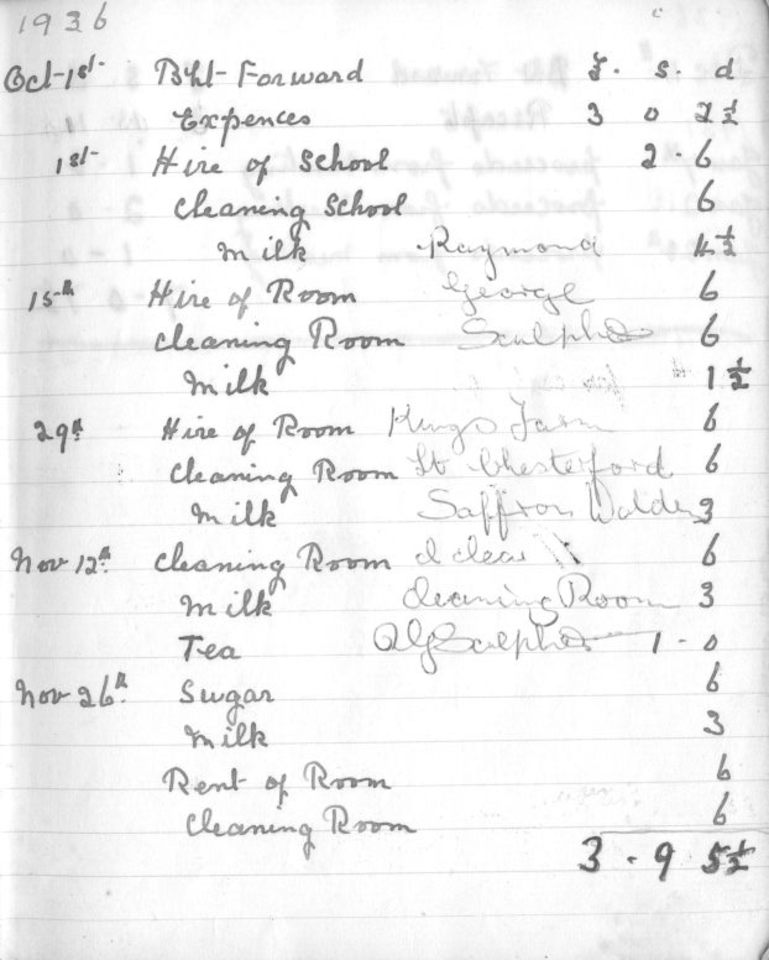 1936
Oct-1st Bht-Forward £. s. d
Expences 3 0 2½
1st Hire of School 2 . 6
Cleaning School 6
Milk Raymond 4½
15th Hire of Room George 6
Cleaning Room Sculpher 6
Milk 1½
29th Hire of Room Kings Farm 6
Cleaning Room Lt Chesterford 6
Milk Saffron Walden 3
Nov 12th Cleaning Room 6
Milk Cleaning Room 3
Tea Sculpher 1 - 0
Nov 26th Sugar 6
Milk 3
Rent of Room 6
Cleaning Room 6
3 . 9 5½